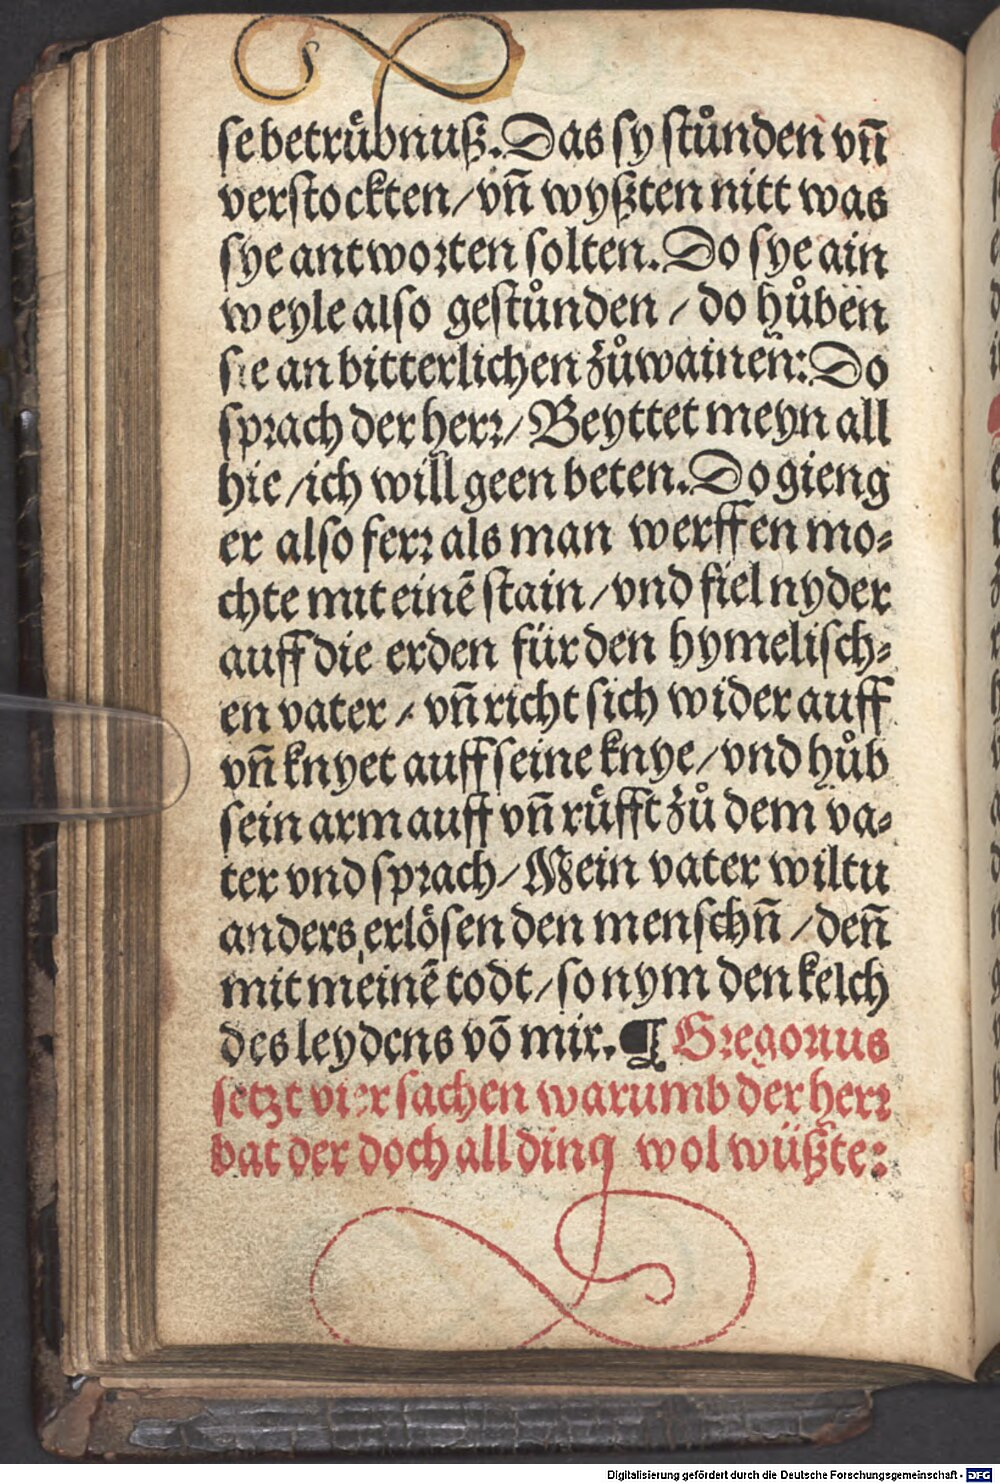 se betrůbnuß. Das sy stůnden vñ
verstockten / vñ wyßten nitt was
sye antworten solten. Do sye ain
weyle also gestůnden / do hůben
sie an bitterlichen zůwainen: Do
sprach der herr / Beyttet meyn all
hie / ich will geen beten. Do gieng
er also ferr als man werffen mo⸗
chte mit einē stain / vnd fiel nyder
auff die erden für den hymelisch⸗
en vater / vñ richt sich wider auff
vñ knyet auff seine knye / vnd hůb
sein arm auff vñ růfft zů dem va⸗
ter vnd sprach / Mein vater wiltu
anders erlösen den menschñ / deñ
mit meinē todt / so nym den kelch
des leydens vō mir. ¶ Gregorius
setzt vier sachen warumb der herr
bat der doch all ding wol wüßte:
Digitalisierung gefördert durch die Deutsche Forschungsgemeinschaft - DFG